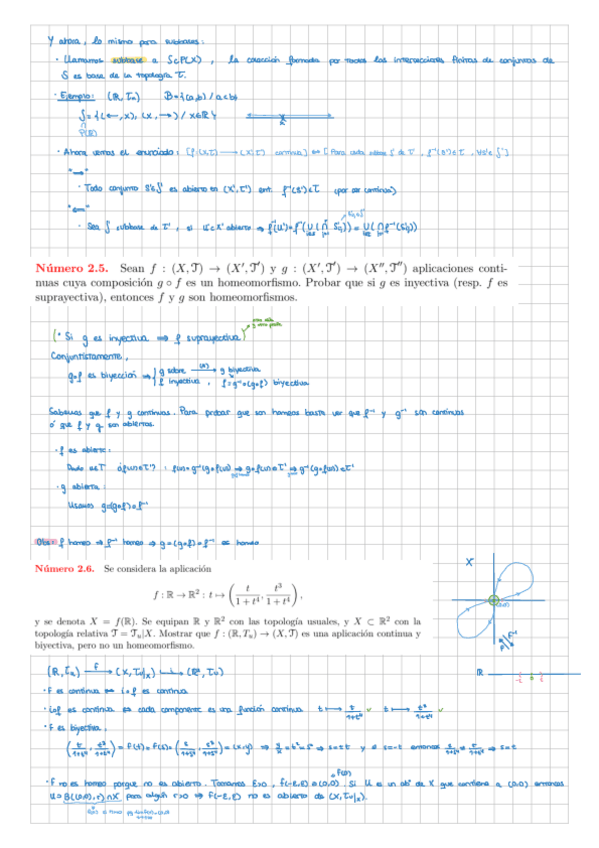 Y ahora, lo mismo para subbases:
· Llamamos subbase a S⊂P(X), la colección formada por todas las intersecciones finitas de conjuntos de
S es base de la topología T.
· Ejemplo: (R, Tu) B={(a,b) / a<b}
S={(←,x), (x,→) / x∈R}
P(R)
· Ahora vemos el enunciado: [f:(X,T)→(X',T') continua] ⇔ [Para cada S' de T', f⁻¹(S')∈T, ∀S'∈S']
"⇒"
· Todo conjunto S'∈S' es abierto en (X',T') ent. f⁻¹(S')∈T (por ser continua)
"⇐"
· Sea S' subbase de T', si U'⊂X' abierto ⇒
Número 2.5. Sean f : (X,T) → (X',T') y g : (X',T') → (X'',T'') aplicaciones conti-
nuas cuya composición g∘f es un homeomorfismo. Probar que si g es inyectiva (resp. f es
suprayectiva), entonces f y g son homeomorfismos.
(· Si g es inyectiva ⇒ f suprayectiva)
Conjuntistamente,
g∘f es biyección ⇒ { g sobre ⟶ g biyectiva
f inyectiva, f=g⁻¹∘(g∘f) biyectiva
Sabemos que f y g continuas. Para probar que son homeos basta ver que f⁻¹ y g⁻¹ son continuas
ó que f y g son abiertas.
· f es abierta:
Dado U∈T ¿f(U)∈T'? : f(U)=g⁻¹(g∘f(U)) ⇒ g∘f(U)∈T'' ⇒ g⁻¹(g∘f(U))∈T'
· g abierta:
Usamos g=(g∘f)∘f⁻¹
Obs: f homeo ⇒ f⁻¹ homeo ⇒ g=(g∘f)∘f⁻¹ es homeo
Número 2.6. Se considera la aplicación
f : R → R² : t ↦ (t/(1+t⁴), t³/(1+t⁴)),
y se denota X = f(R). Se equipan R y R² con las topología usuales, y X ⊂ R² con la
topología relativa T = Tu|X. Mostrar que f : (R,Tu) → (X,T) es una aplicación continua y
biyectiva, pero no un homeomorfismo.
X
(0,0)
R
(R,Tu) →f (X,Tu|X) ↪ (R²,Tu)
· f es continua ⇔ i∘f es continua
· i∘f es continua ⇔ cada componente es una función continua t ↦ t/(1+t⁴) ✓ t ↦ t³/(1+t⁴) ✓
· f es biyectiva,
(t/(1+t⁴), t³/(1+t⁴)) = f(t)=f(s)= (s/(1+s⁴), s³/(1+s⁴)) = (x,y) ⇒ y/x=t²=s² ⇒ s=±t y si s=-t entonces ⇒ s=t
· f no es homeo porque no es abierta. Tomamos ε>0, f(-ε,ε)∋(0,0). Si U es un ab° de X que contiene a (0,0) entonces
U⊃B((0,0),r)∩X para algún r>0 ⇒ f(-ε,ε) no es abierto de (X,Tu|X).